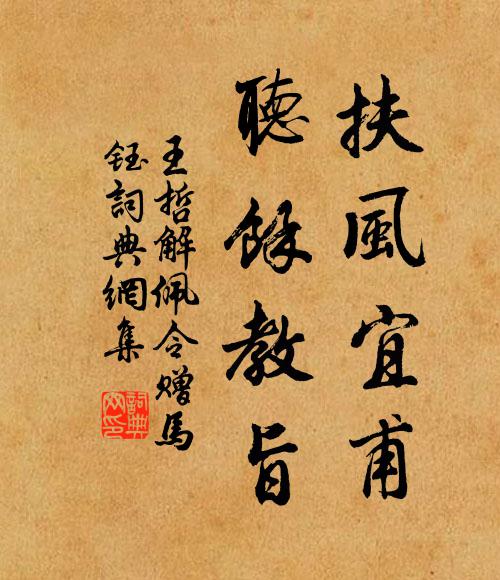 扶風宜甫
聽餘教旨
王哲解佩令贈馬
鈺詞典網集
詞典網印